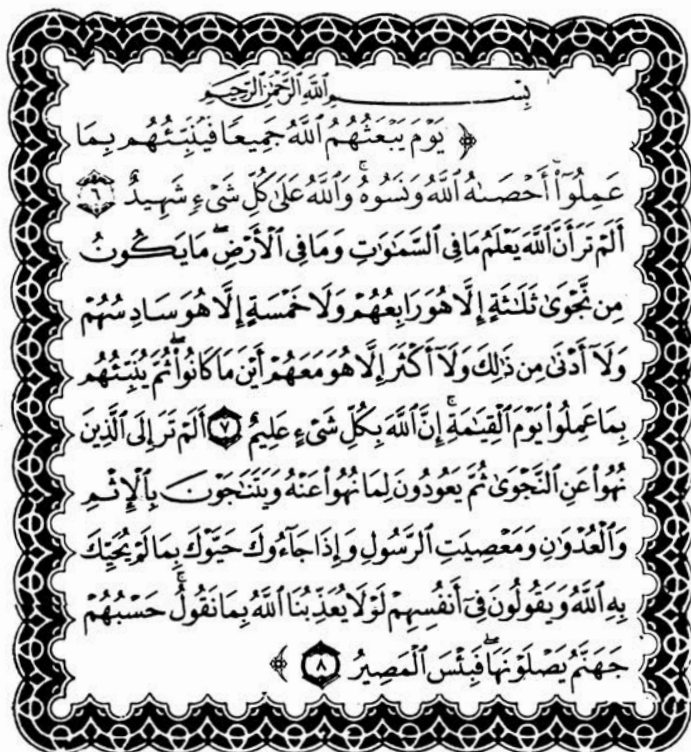 بِسْمِ ٱللَّهِ ٱلرَّحْمَٰنِ ٱلرَّحِيمِ
﴿ يَوْمَ يَبْعَثُهُمُ ٱللَّهُ جَمِيعًا فَيُنَبِّئُهُم بِمَا
عَمِلُوٓا۟ أَحْصَىٰهُ ٱللَّهُ وَنَسُوهُ ۚ وَٱللَّهُ عَلَىٰ كُلِّ شَىْءٍ شَهِيدٌ ٦
أَلَمْ تَرَ أَنَّ ٱللَّهَ يَعْلَمُ مَا فِى ٱلسَّمَٰوَٰتِ وَمَا فِى ٱلْأَرْضِ ۖ مَا يَكُونُ
مِن نَّجْوَىٰ ثَلَٰثَةٍ إِلَّا هُوَ رَابِعُهُمْ وَلَا خَمْسَةٍ إِلَّا هُوَ سَادِسُهُمْ
وَلَآ أَدْنَىٰ مِن ذَٰلِكَ وَلَآ أَكْثَرَ إِلَّا هُوَ مَعَهُمْ أَيْنَ مَا كَانُوا۟ ۖ ثُمَّ يُنَبِّئُهُم
بِمَا عَمِلُوا۟ يَوْمَ ٱلْقِيَٰمَةِ ۚ إِنَّ ٱللَّهَ بِكُلِّ شَىْءٍ عَلِيمٌ ٧ أَلَمْ تَرَ إِلَى ٱلَّذِينَ
نُهُوا۟ عَنِ ٱلنَّجْوَىٰ ثُمَّ يَعُودُونَ لِمَا نُهُوا۟ عَنْهُ وَيَتَنَٰجَوْنَ بِٱلْإِثْمِ
وَٱلْعُدْوَٰنِ وَمَعْصِيَتِ ٱلرَّسُولِ وَإِذَا جَآءُوكَ حَيَّوْكَ بِمَا لَمْ يُحَيِّكَ
بِهِ ٱللَّهُ وَيَقُولُونَ فِىٓ أَنفُسِهِمْ لَوْلَا يُعَذِّبُنَا ٱللَّهُ بِمَا نَقُولُ ۚ حَسْبُهُمْ
جَهَنَّمُ يَصْلَوْنَهَا ۖ فَبِئْسَ ٱلْمَصِيرُ ٨ ﴾